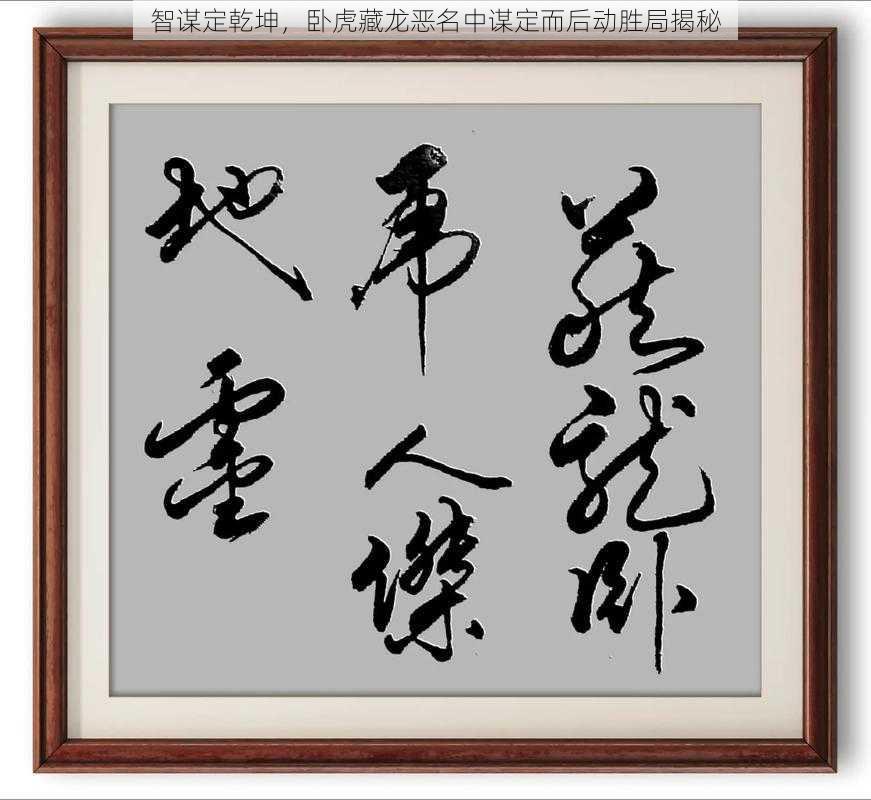 智谋定乾坤，卧虎藏龙恶名中谋定而后动胜局揭秘
藏龍卧
虎人傑
地靈